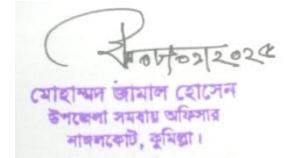 ০৭/০২/২০২৫
মোহাম্মদ জামাল হোসেন
উপজেলা সমবায় অফিসার
নাঙ্গলকোট, কুমিল্লা।